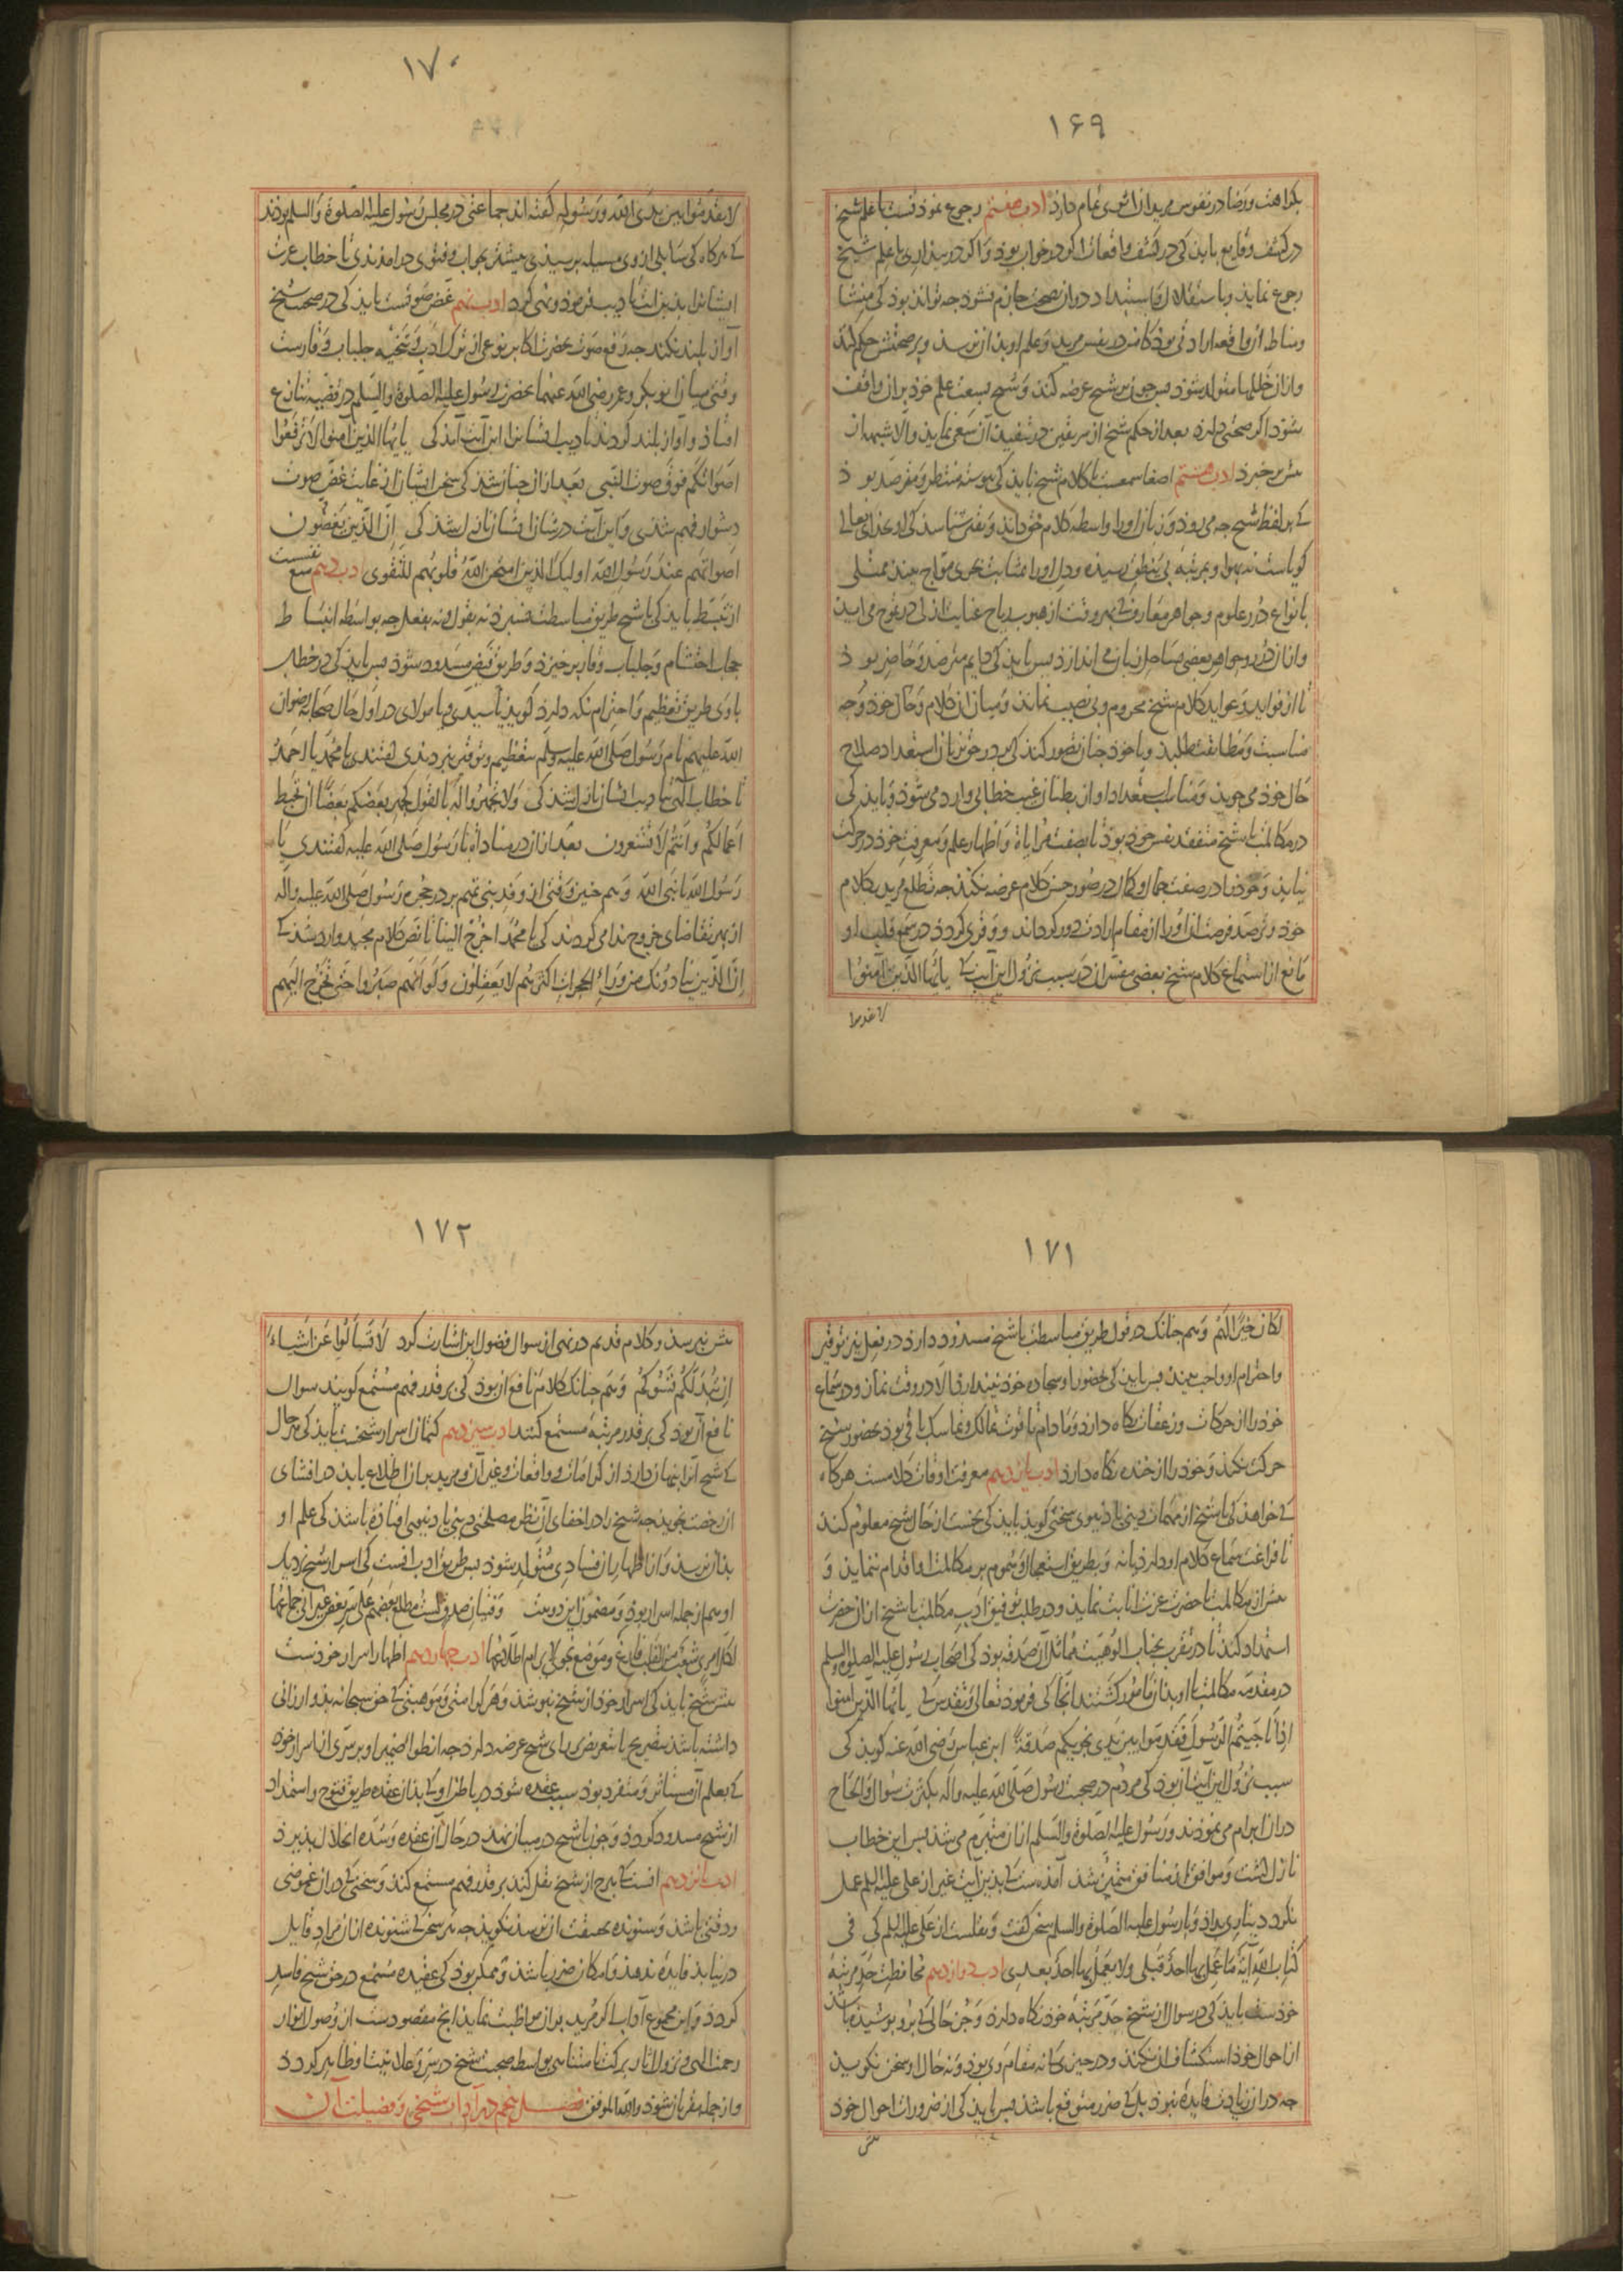 ۱۶۹
بکراهت و رضا در نفوس مریدان اثری تمام دارد ادب هفتم رجوع نمودنست با علم شیخ
در کشف وقایع باید کی در کشف واقعات اکر در خواب بود و اکر در بیداری با علم شیخ
رجوع نماید و باستقلال و استبداد در ان بصحت جازم نشود چه تواند بود کی منشا
و مناط آن واقعه ارادتی بود کامن در نفس مرید و علم او بدان نرسد و بر صحتش حکم کند
و ازان خللها متولد شود پس چون بر شیخ عرضه کند و شیخ بسعت علم خود بران واقف
شود اکر صحتی دارد بعد از حکم شیخ از سر یقین در تنفیذ آن سعی نماید و الا شبهه از
پیش بر خیزد ادب هشتم اصغا سمعست با کلام شیخ باید کی پیوسته منتظر و مترصد بود
که بر لفظ شیخ چه می رود و زبان او را واسطه کلام حق داند و یقین شناسد کی او بخدای تعالی
کویاست نه بهوا و بمرتبه بی ینطق رسیده و دل او را بمثابت بحری مواج بیند ممتلی
بانواع درر علوم و جواهر معارف که بهر وقت از هبوب ریاح عنایت ازلی در تموج می اید
و ازان درر و جواهر بعضی بساحل زبان می اندازد پس باید کی دایم مترصد و حاضر بود
تا از فواید و عواید کلام شیخ محروم و بی نصیب نماند و میان ان کلام و حال خود وجه
مناسبت و مطابقت طلبد و با خود چنان تصور کند کی بر در حق بزبان استعداد صلاح
حال خود می جوید و مناسب استعداد او از بطنان غیب خطابی وارد می شود و باید کی
در مکالمت با شیخ متفقد نفس خود بود تا بصفت مراياة و اظهار علم و معرفت خود در حرکت
نیاید و خود را در صفت جمال و کمال در صور حسن کلام عرضه نکند چه تطلع مرید بکلام
خود و ترصد فرصت ان او را از مقام ارادت دور کرداند و وقری کردد در سمع قلب او
مانع از استماع کلام شیخ بعضی مفسران در سبب نزول این آیت که یا ایها الذین آمنوا
لا تقدموا
۱۷۰
لا تقدموا بین یدی الله و رسوله کفته اند جماعتی در مجلس رسول علیه الصلوة و السلم بودند
که هر کاه کی سایلی از وی مسیله پرسیدی پیشتر بجواب و فتوی در امدندی تا خطاب عزت
ایشانرا بدین ایت تادیب فرمود و نهی کرد ادب نهم غض صوتست باید کی در صحبت شیخ
آواز بلند نکند چه رفع صوت بحضرت اکابر نوعی از ترک ادب و تنحیه جلباب وقارست
وقتی میان ابوبکر و عمر رضی الله عنهما بحضرت رسول علیه الصلوة و السلم در قضیه تنازع
افتاد و آواز بلند کردند تادیب ایشانرا این آیت آمد کی یا ایها الذین آمنوا لا ترفعوا
اصواتکم فوق صوت النبی بعد ازان چنان شدند کی سخن ایشان از غایت غض صوت
دشوار فهم شدی و این آیت در شان ایشان نازل شد کی ان الذین یغضون
اصواتهم عند رسول الله اولیک الذین امتحن الله قلوبهم للتقوی ادب دهم منع نفسست
از تبسط باید کی با شیخ طریق مباسطت نسپرد نه بقول و نه بفعل چه بواسطه انبساط
حجاب احتشام و جلباب وقار بر خیزد و طریق فیض مسدود شود پس باید کی در خطاب
با وی طریق تعظیم و احترام نکه دارد کوید یا سیدی و یا مولای در اول حال صحابه رضوان
الله علیهم نام رسول صلی الله علیه و سلم بتعظیم و توقیر نبردندی کفتندی یا محمد یا احمد
تا خطاب الهی بتادیب ایشان نازل شد کی ولا تجهروا له بالقول کجهر بعضکم بعضا ان تحبط
اعمالکم و انتم لا تشعرون بعد ازان در مناداة با رسول صلی الله علیه کفتندی یا
رسول الله یا نبی الله و هم چنین وقتی ان وفد بنی تمیم بر در حجره رسول صلی الله علیه واله
از بهر تقاضای خروج ندا می کردند کی یا محمد اخرج الینا تا نص کلام مجید وارد شد که
ان الذین ینادونک من وراء الحجرات اکثرهم لا یعقلون ولو انهم صبروا حتی تخرج الیهم
۱۷۱
لکان خیرا لهم و هم چنانک در قول طریق مباسطت با شیخ مسدود دارد در فعل نیز توقیر
و احترام او واجب بیند پس باید کی بحضور او سجاده خود نیندازد الا در وقت نماز و در سماع
خود را از حرکات و زعقات نکاه دارد و مادام تا قوت تمالک و تماسک باقی بود بحضور شیخ
حرکت نکند و خود را از خنده نکاه دارد ادب یازدهم معرفت اوقات کلامست هر کاه
که خواهد کی با شیخ از مهمات دینی یا دنیوی سخنی کوید باید کی نخست از حال شیخ معلوم کند
تا فراغت سماع کلام او دارد یا نه و بطریق استعجال و هجوم بر مکالمت او اقدام ننماید و
پیش از مکالمت با حضرت عزت انابت نماید و در طلب توفیق ادب مکالمت با شیخ ازان حضرت
استمداد کند تا در تقرب بجناب الوهیت مماثل آن صدقه بود کی اصحاب رسول علیه الصلوة و السلم
در مقدمه مکالمت با او بدان مامور کشتند انجا کی فرمود تعالی و تقدس که یا ایها الذین آمنوا
اذا ناجیتم الرسول فقدموا بین یدی نجویکم صدقة ابن عباس رضی الله عنه کوید کی
سبب نزول این آیت آن بود کی مردم در صحبت رسول صلی الله علیه واله بکثرت سوال و الحاح
دران ابرام می نمودند و رسول علیه الصلوة و السلم ازان متبرم می شد پس این خطاب
نازل کشت و موافق از منافق متمیز شد آمده ست که بدین آیت غیر از علی علیه السلم عمل
نکرد دیناری بداد و با رسول علیه الصلوة و السلم سخن کفت و نقلست از علی علیه السلم کی فی
کتاب الله آیة ما عمل بها احد قبلی ولا یعمل بها احد بعدی ادب دوازدهم محافظت حد مرتبه
خودست باید کی در سوال از شیخ حد مرتبه خود نکاه دارد و چون حالی که برو پوشیده باشد
از احوال خود استکشاف ان نکند و در چیزی کی نه مقام وی بود و نه حال او سخن نکوید
چه دران زیادت فایده نبود بلکه ضرر متوقع باشد پس باید کی از ضرورات احوال خود
بیش
۱۷۲
بیش نپرسد و کلام قدیم در نهی از سوال فضول این اشارت کرد لا تسألوا عن اشیاء
ان تبد لکم تسؤکم و هم چنانک کلام نافع آن بود کی بر قدر فهم مستمع کویند سوال
نافع آن بود کی بر قدر مرتبه مستمع کنند ادب سیزدهم کتمان اسرار شیخست باید کی هر حال
که شیخ آنرا پنهان دارد از کرامات و واقعات و غیر آن و مرید بران اطلاع یابد در افشای
ان رخصت نجوید چه شیخ را در اخفای آن نظر مصلحتی دینی یا دنیوی افتاده باشد کی علم او
بدان نرسد و ازان اظهار آن فسادی متولد شود پس طریق ادب آنست کی اسرار شیخ دیک
او هم از جمله اسرار بود و مضمون این دو بیت و فتیان صدق لست مطلع بعضهم علی سر بعض غیر انی جماعها
لکل امرئ شعب من القلب فارغ و موضع نجوی لا یرام اطلاعها ادب چهاردهم اظهار اسرار خودست
پیش شیخ باید کی اسرار خود از شیخ نپوشد و هر کرامتی و موهبتی که حق سبحانه بدو ارزانی
داشته باشد بتصریح یا بتعریض بر رای شیخ عرضه دارد چه انطواء ضمیر او بر سری از اسرار خود
که بعلم آن مستاثر و منفرد بود سبب عقده شود در باطن او که بدان عقده طریق فتوح و استمداد
از شیخ مسدود کردد و چون با شیخ در میان نهد در حال آن عقده و سده انحلال پذیرد
ادب پانزدهم آنست که هرچ از شیخ نقل کند بر قدر فهم مستمع کند و سخنی که دران غموضی
و دقتی باشد و شنونده بحقیقت آن نرسد نکوید چه هر سخن که شنونده ازان مراد قایل
در نیابد فایده ندهد و امکان ضرر باشد و ممکن بود کی عقیده مستمع در حق شیخ فاسد
کردد و این مجموع آدابست که اکر مرید بران مواظبت نماید انچ مقصودست از وصول انوار
رحمت الهی و نزول اثار برکت نامتناهی بواسطه صحبت شیخ در سر و علانیت او ظاهر کردد
و از جمله مقربان شود والله الموفق فصل پنجم در آداب شیخی و فضیلت آن